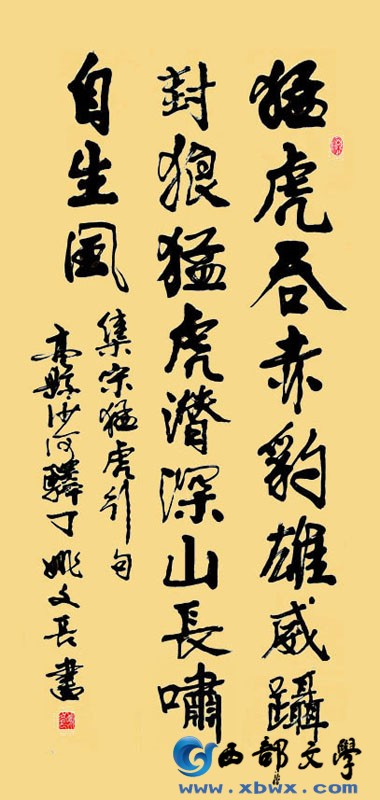 猛虎吞赤豹雄威躡
封狼猛虎潛深山長嘯
自生風
集宋猛虎行句
高縣沙河驛丁姚文長書
西部文學
www.xbwx.cn